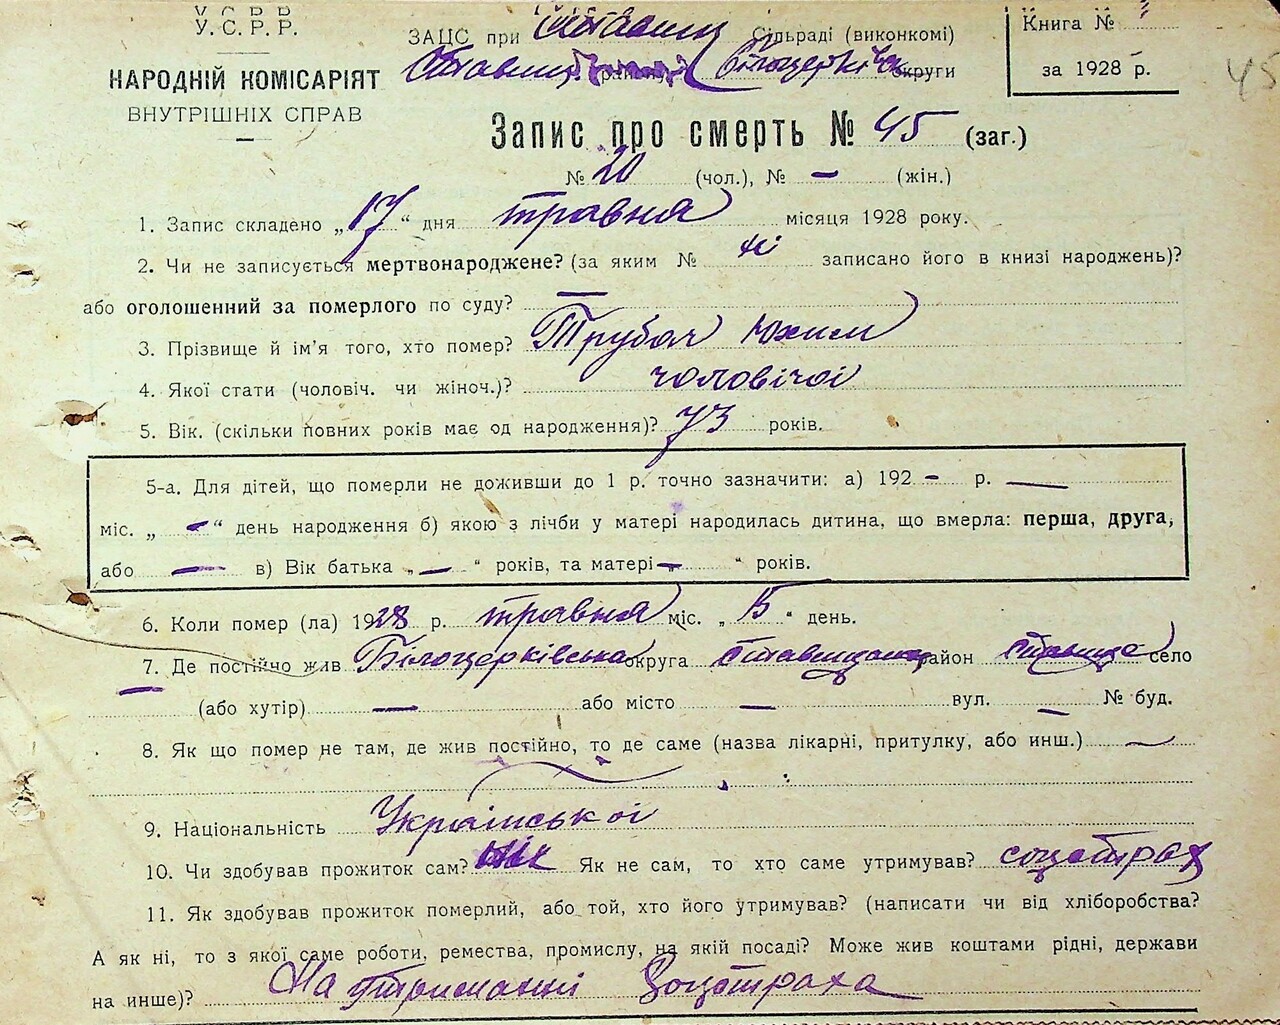 У.С.Р.Р.
НАРОДНІЙ КОМІСАРІЯТ
ВНУТРІШНІХ СПРАВ
ЗАЦС при Ставищ Сільраді (виконкомі)
Ставищ району Білоцерківск округи
Книга №
за 1928 р.
45
Запис про смерть № 45 (заг.)
№ 20 (чол.), № — (жін.)
1. Запис складено „17“ дня травня місяця 1928 року.
2. Чи не записується мертвонароджене? (за яким № ні записано його в книзі народжень)?
або оголошенний за померлого по суду? —
3. Прізвище й ім'я того, хто помер? Трубач Юхим
4. Якої стати (чоловіч. чи жіноч.)? чоловічої
5. Вік. (скільки повних років має од народження)? 73 років.
5-а. Для дітей, що померли не доживши до 1 р. точно зазначити: а) 192 — р. —
міс. „ — “ день народження б) якою з лічби у матері народилась дитина, що вмерла: перша, друга,
або — в) Вік батька „ — “ років, та матері — “ років.
6. Коли помер (ла) 1928 р. травня міс. „ 15 “ день.
7. Де постійно жив Білоцерківська округа Ставищанск район Ставище село
— (або хутір) — або місто — вул. — № буд.
8. Як що помер не там, де жив постійно, то де саме (назва лікарні, притулку, або инш.) —
9. Національність Української
10. Чи здобував прожиток сам? Як не сам, то хто саме утримував? соцстрах
11. Як здобував прожиток померлий, або той, хто його утримував? (написати чи від хліборобства?
А як ні, то з якої саме роботи, ремества, промислу, на якій посаді? Може жив коштами рідні, держави
на инше)? На утриманні Соцстраха